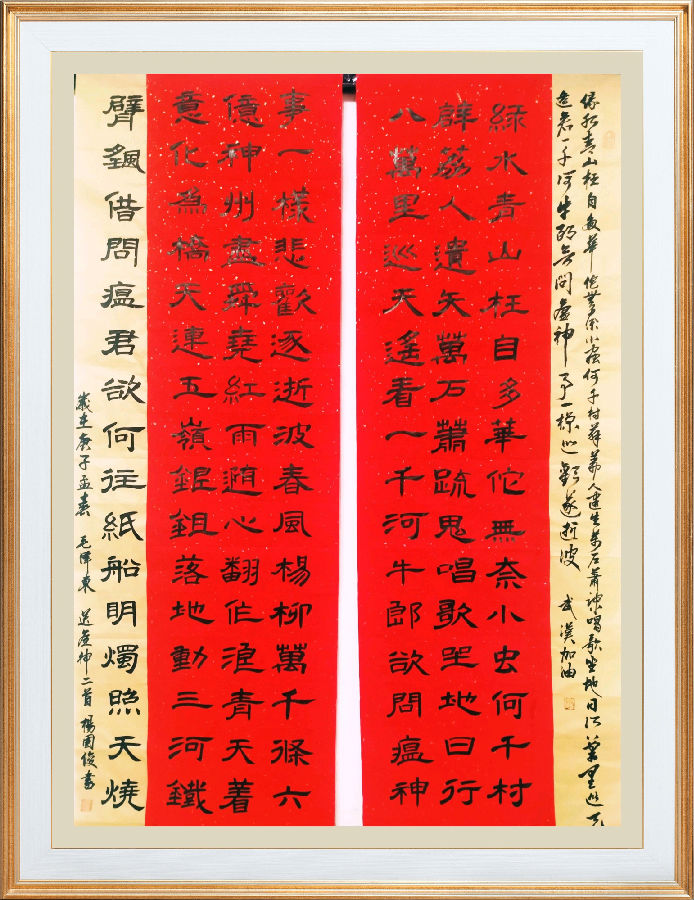 绿水青山枉自多華佗無奈小蟲何千村薜荔人遺矢萬石蕭疏唱歌坐地日行八萬里巡天
遙看一千河牛郎欲問瘟神事一樣悲歡逐逝波 武漢加油
綠水青山枉自多華佗無奈小虫何千村
薜荔人遺矢萬石蕭疏鬼唱歌坐地日行
八萬里巡天遙看一千河牛郎欲問瘟神
事一樣悲歡逐逝波春風楊柳萬千條六
億神州盡舜堯紅雨隨心翻作浪青天着
意化為橋天連五嶺銀鋤落地動三河鐵
臂颻借問瘟君欲何往紙船明燭照天燒
歲在庚子孟春 毛澤東 送瘟神二首 楊國俊書